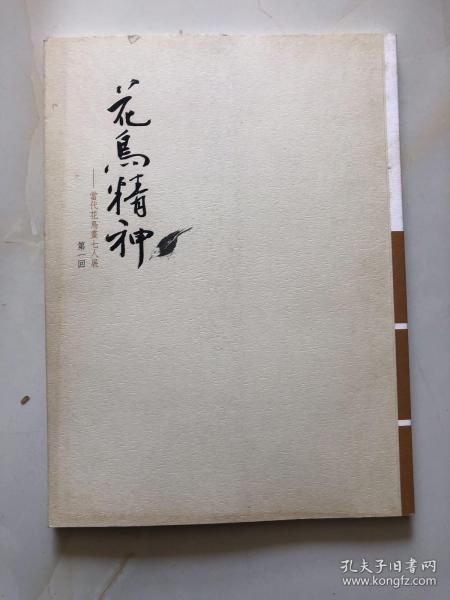 花鳥精神
——當代花鳥畫七人展
第一回
孔夫子旧书网
www.kongfz.com